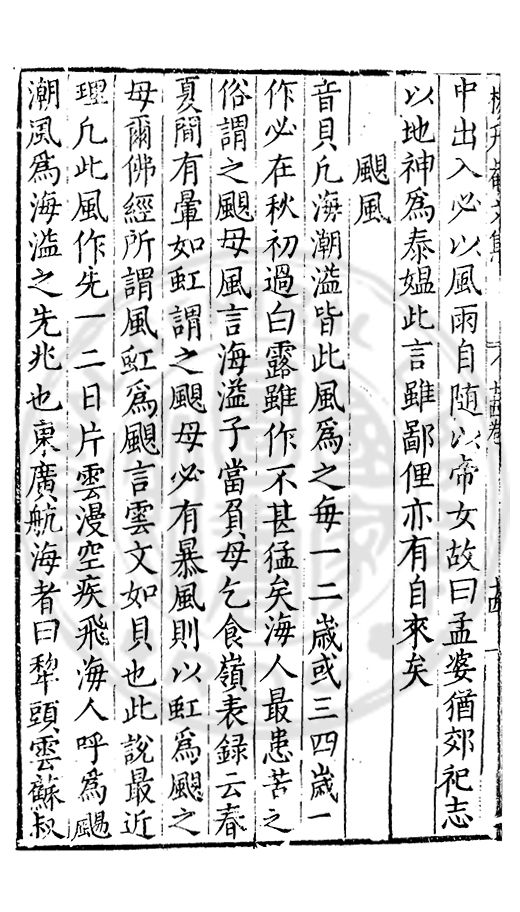 中出入必以風雨自隨以帝女故曰孟婆猶郊祀志
以地神爲泰媪此言雖鄙俚亦有自來矣
颶風
音貝凡海潮溢皆此風爲之每一二歲或三四歲一
作必在秋初過白露雖作不甚猛矣海人最患苦之
俗謂之颶母風言海溢子當負母乞食嶺表録云春
夏間有暈如虹謂之颶母必有暴風則以虹爲颶之
母爾佛經所謂風虹爲颶言雲文如貝也此說最近
理凡此風作先一二日片雲漫空疾飛海人呼爲颺
潮風爲海溢之先兆也東廣航海者曰犂頭雲蘇叔